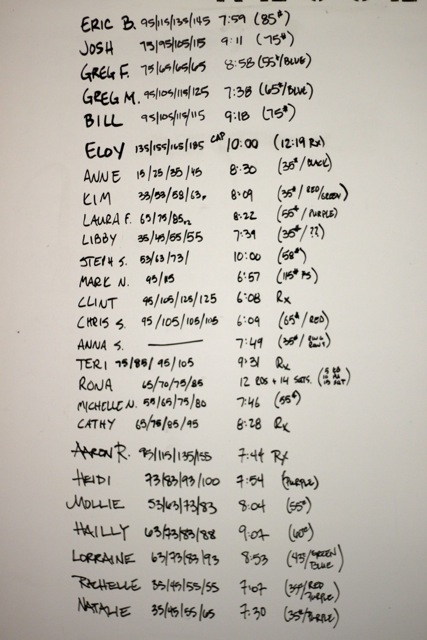 ERIC B. 95/115/135/145 7:59 (85#)
JOSH 75/95/105/115 9:11 (75#)
GREG F. 75/65/65/65 8:58 (55#/BLUE)
GREG M. 95/105/115/125 7:38 (65#/BLUE)
BILL 95/105/115/115 9:18 (75#)
ELOY 135/155/165/185 CAP 10:00 (12:19 Rx)
ANNE 15/25/35/45 8:30 (35#/BLACK)
KIM 33/53/58/63 8:09 (35#/RED/GREEN)
LAURA F. 65/75/85 8:22 (55#/PURPLE)
LIBBY 35/45/55/55 7:39 (35#/??)
STEPH S. 53/63/73/ 10:00 (58#)
MARK N. 95/115 6:57 (115# PS)
CLINT 95/105/125/125 6:08 Rx
CHRIS S. 95/105/105/105 6:09 (65#/RED)
ANNA S. — 7:49 (35#/RING ROWS)
TERI 75/85/95/105 9:31 Rx
RONA 65/70/75/85 12 RDS + 14
MICHELLE N. 55/65/75/80 7:46 (55#)
CATHY 65/75/85/95 8:28 Rx
AARON R. 95/115/135/155 7:44 Rx
HEIDI 73/83/93/100 7:54 (PURPLE)
MOLLIE 53/63/73/83 8:04 (55#)
HAILLY 63/73/83/88 9:07 (60#)
LORRAINE 63/73/83/93 8:53 (43/GREEN BLUE)
RACHELLE 35/45/55/55 7:07 (35#/RED PURPLE)
NATALIE 35/45/55/65 7:30 (35#/PURPLE)